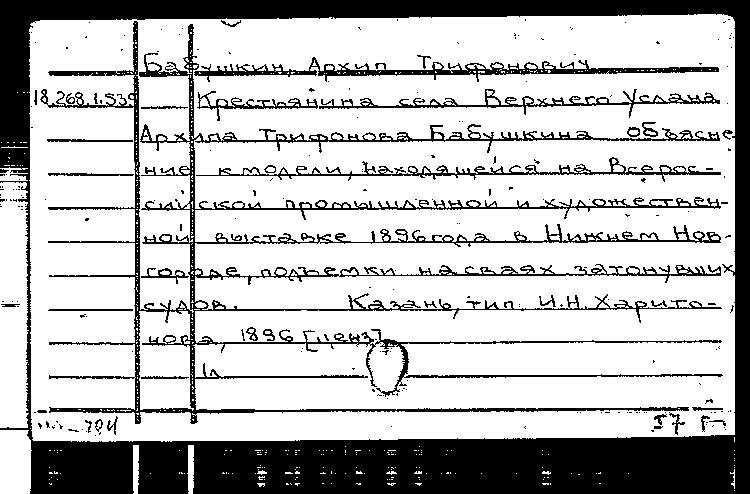 Бабушкин, Архип Трифонович
18.268.1.539 Крестьянина села Верхнего Услана
Архипа Трифонова Бабушкина объясне
ние к модели, находящейся на Всерос-
сийской промышленной и художествен-
ной выставке 1896 года в Нижнем Нов-
городе, подъемки на сваях затонувших
судов. Казань, тип. И.Н. Харито-
нова, 1896 [ценз]
1л
57 г.